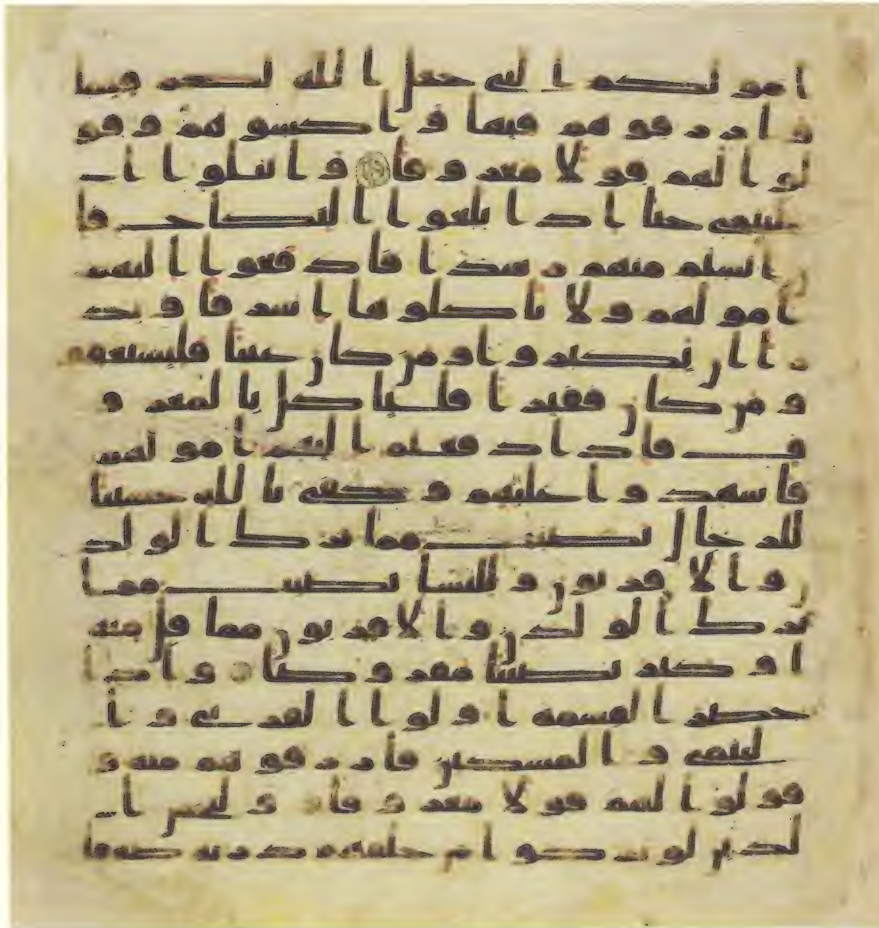 امولكم التى جعل الله لكم قيما
وارزقوهم فيها واكسوهم وقو
لوا لهم قولا معروفا وابتلوا ا
ليتمى حتا اذا بلغوا النكاح فا
ن انستم منهم رشدا فادفعوا اليهم
امولهم ولا تاكلوها اسرافا وبد
ارا ان يكبروا ومن كان غنيا فليستعفف
ومن كان فقيرا فلياكل بالمعرو
ف فاذا دفعتم اليهم امولهم
فاشهدوا عليهم وكفى بالله حسيبا
للرجال نصيب مما ترك الولد
ن والاقربون وللنسا نصيب مما
ترك الولدن والاقربون مما قل منه
او كثر نصيبا مفروضا واذا
حضر القسمة اولوا القربى وا
ليتمى والمسكين فارزقوهم منه و
قولوا لهم قولا معروفا وليخش ا
لذين لو تركوا من خلفهم ذرية ضعفا